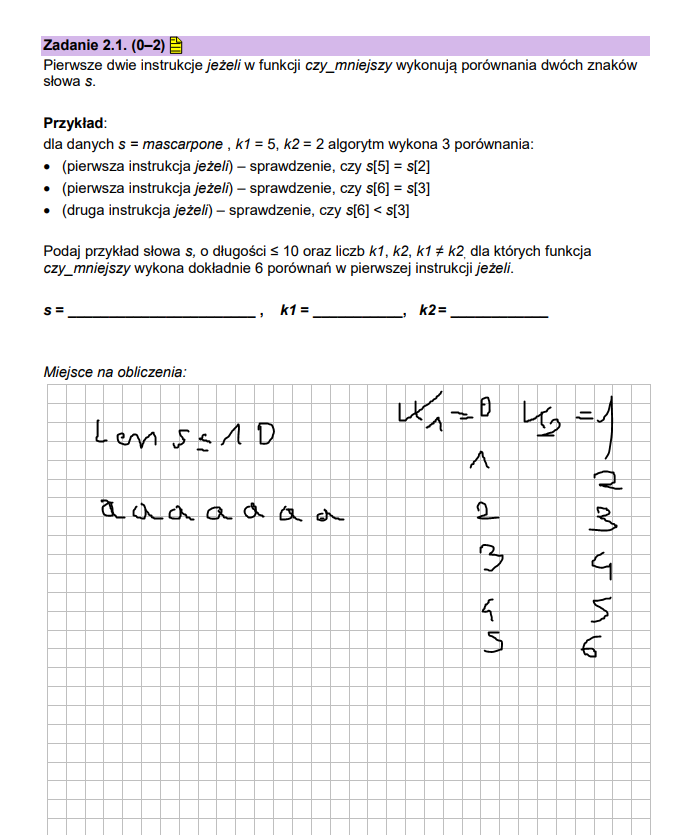 Zadanie 2.1. (0–2)
Pierwsze dwie instrukcje jeżeli w funkcji czy_mniejszy wykonują porównania dwóch znaków
słowa s.
Przykład:
dla danych s = mascarpone , k1 = 5, k2 = 2 algorytm wykona 3 porównania:
• (pierwsza instrukcja jeżeli) – sprawdzenie, czy s[5] = s[2]
• (pierwsza instrukcja jeżeli) – sprawdzenie, czy s[6] = s[3]
• (druga instrukcja jeżeli) – sprawdzenie, czy s[6] < s[3]
Podaj przykład słowa s, o długości ≤ 10 oraz liczb k1, k2, k1 ≠ k2, dla których funkcja
czy_mniejszy wykona dokładnie 6 porównań w pierwszej instrukcji jeżeli.
s = ________________________ , k1 = ___________, k2 = ____________
Miejsce na obliczenia:
K1 = 0 K2 = 1
Len s ≤ 10
1 2
aaaaaaa 2 3
3 4
4 5
5 6